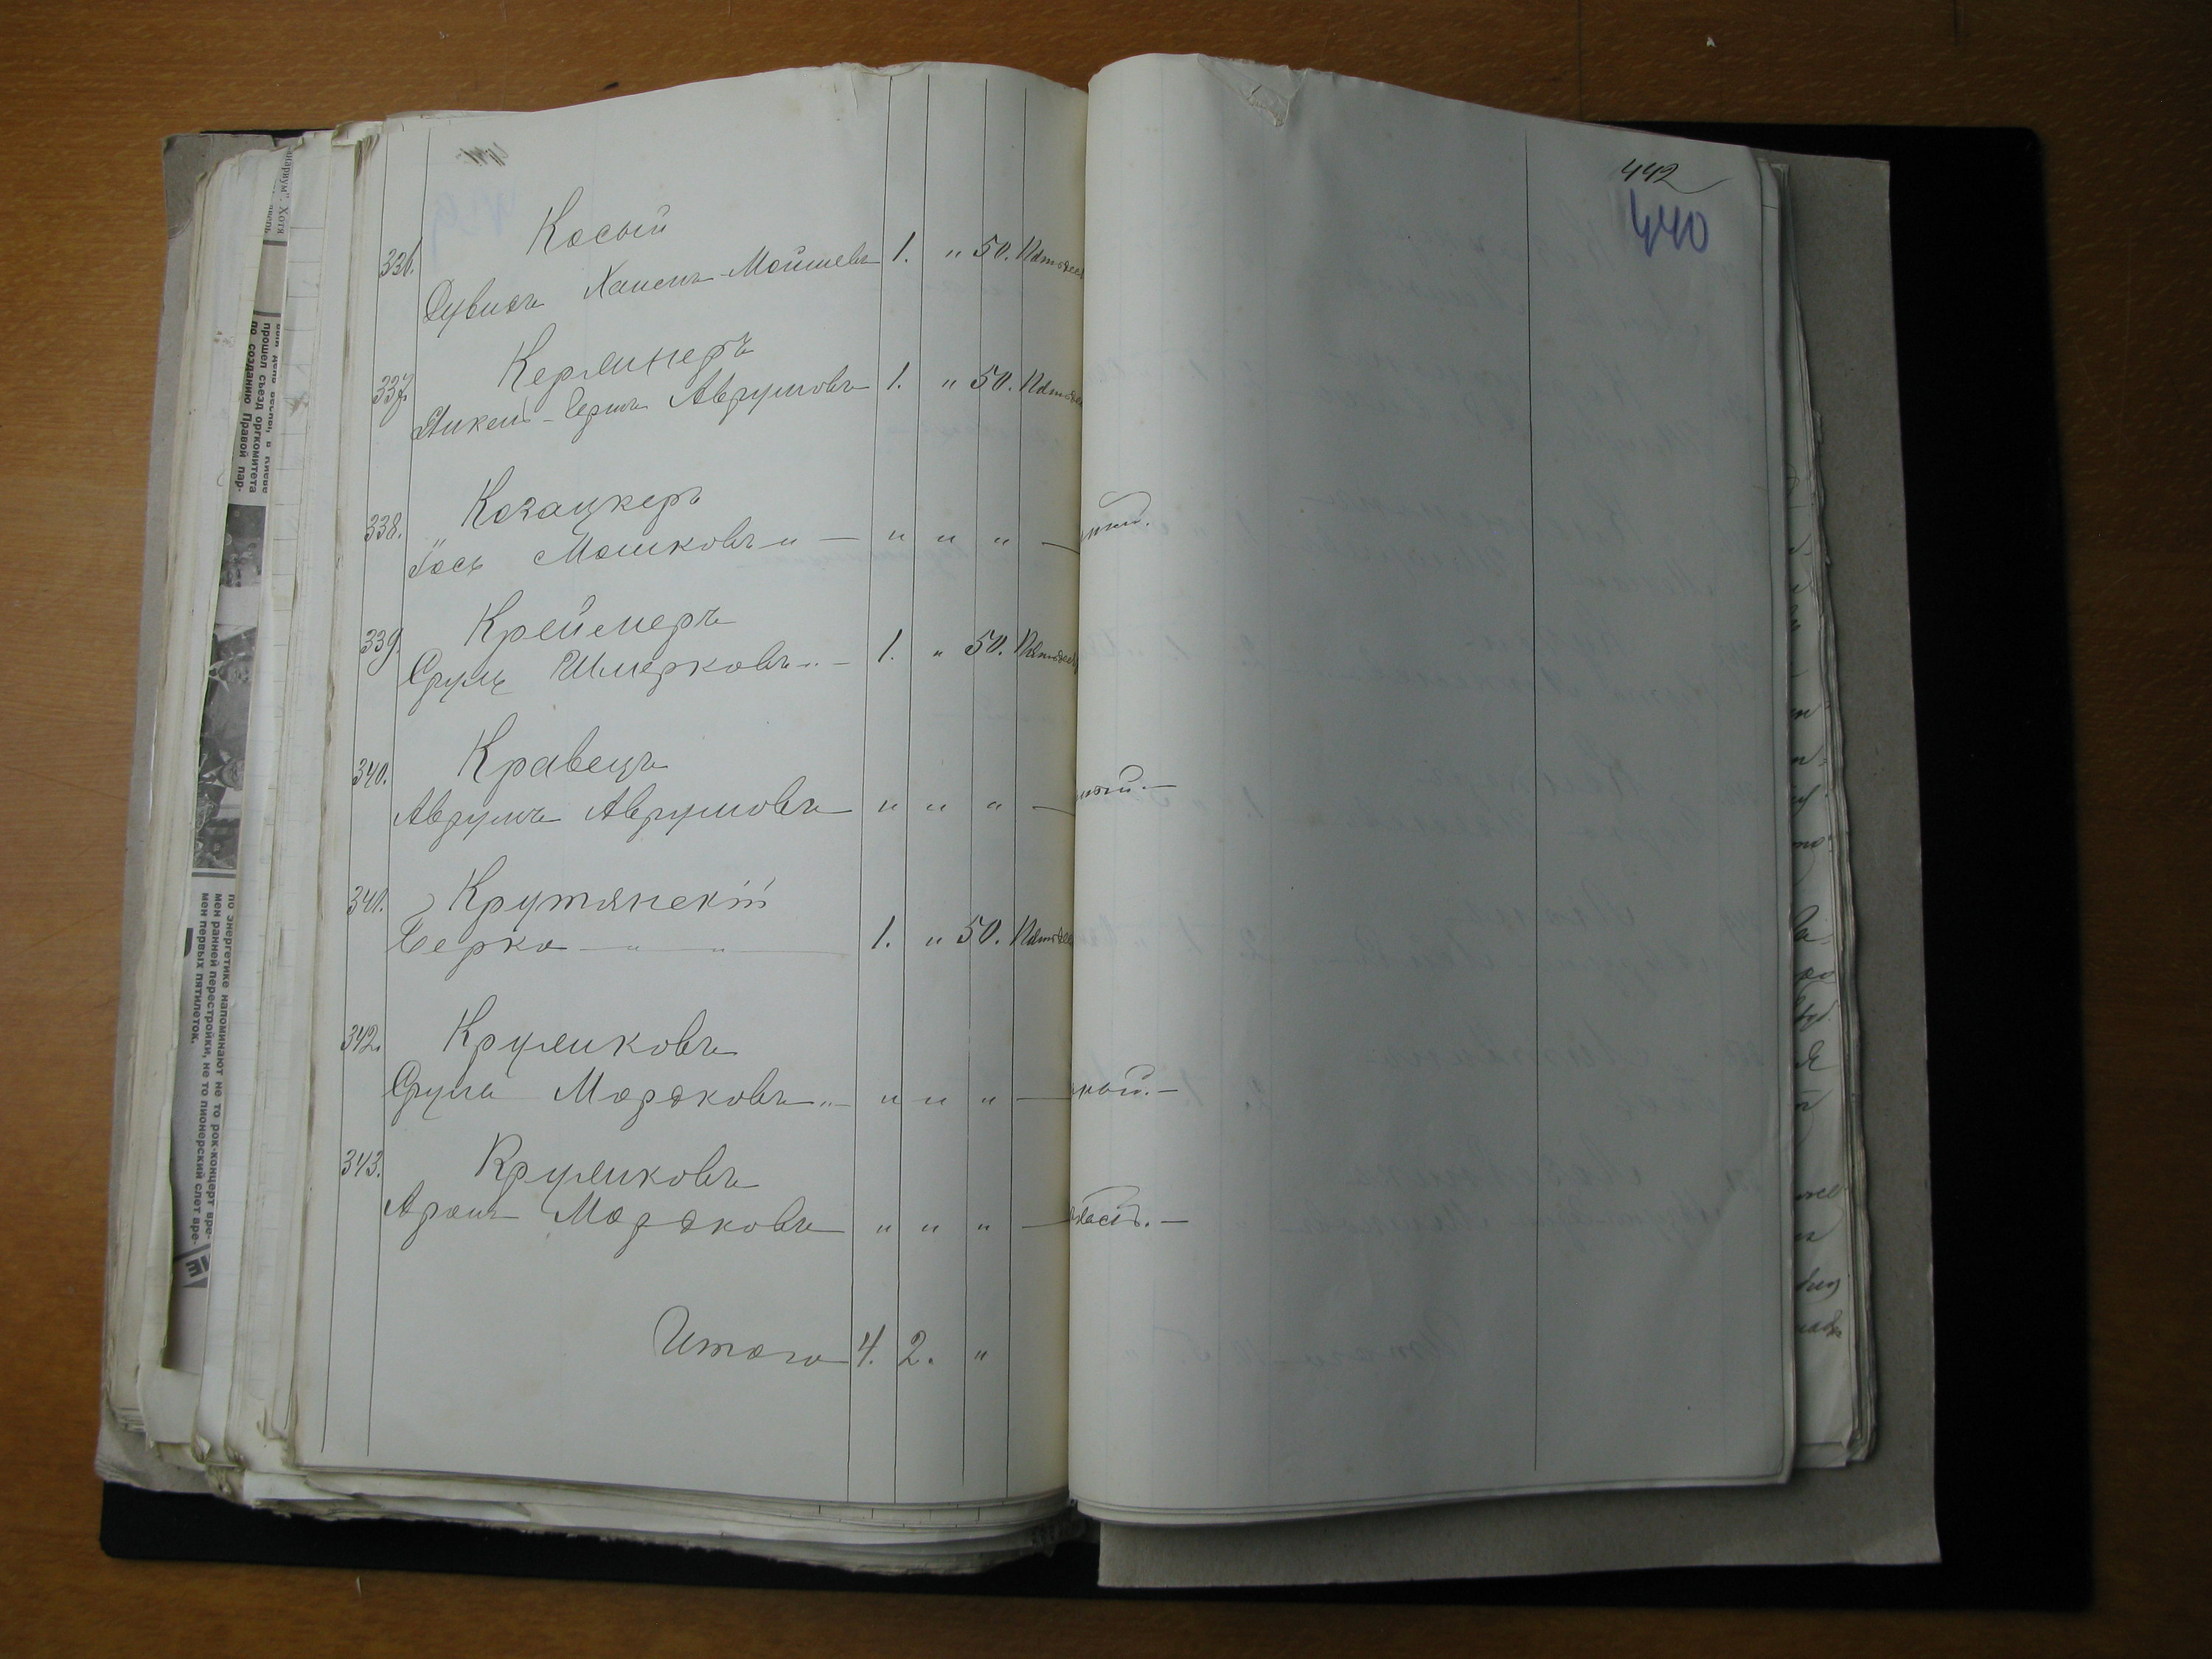 336. Косый
Дувидъ Хаимъ-Мойшевъ 1. " 50. Пятьдес
337. Керлинеръ
Янкель-Герша Аврумовъ 1. " 50. Пятьдес
338. Козацкеръ
Іось Мошковъ " — " " " —
339. Креймеръ
Сруль Шмерковъ " — 1. " 50. Пятьдес
340. Кравецъ
Аврумъ Аврумовъ " " " —
341. Крутянскій
Берко — " — " — 1. " 50. Пятьдес
342. Круликовъ
Сруль Мордковъ " — " " " —
343. Круликовъ
Аронъ Мордковъ " " " —
Итого 4. 2. "
442
440
ный. —
ный. —
прошел съезд оргкомитета
по созданию Правой пар-
по энергетике напоминают не то рок-концерт вре-
мен ранней перестройки, не то пионерский слет вре-
мен первых пятилеток.